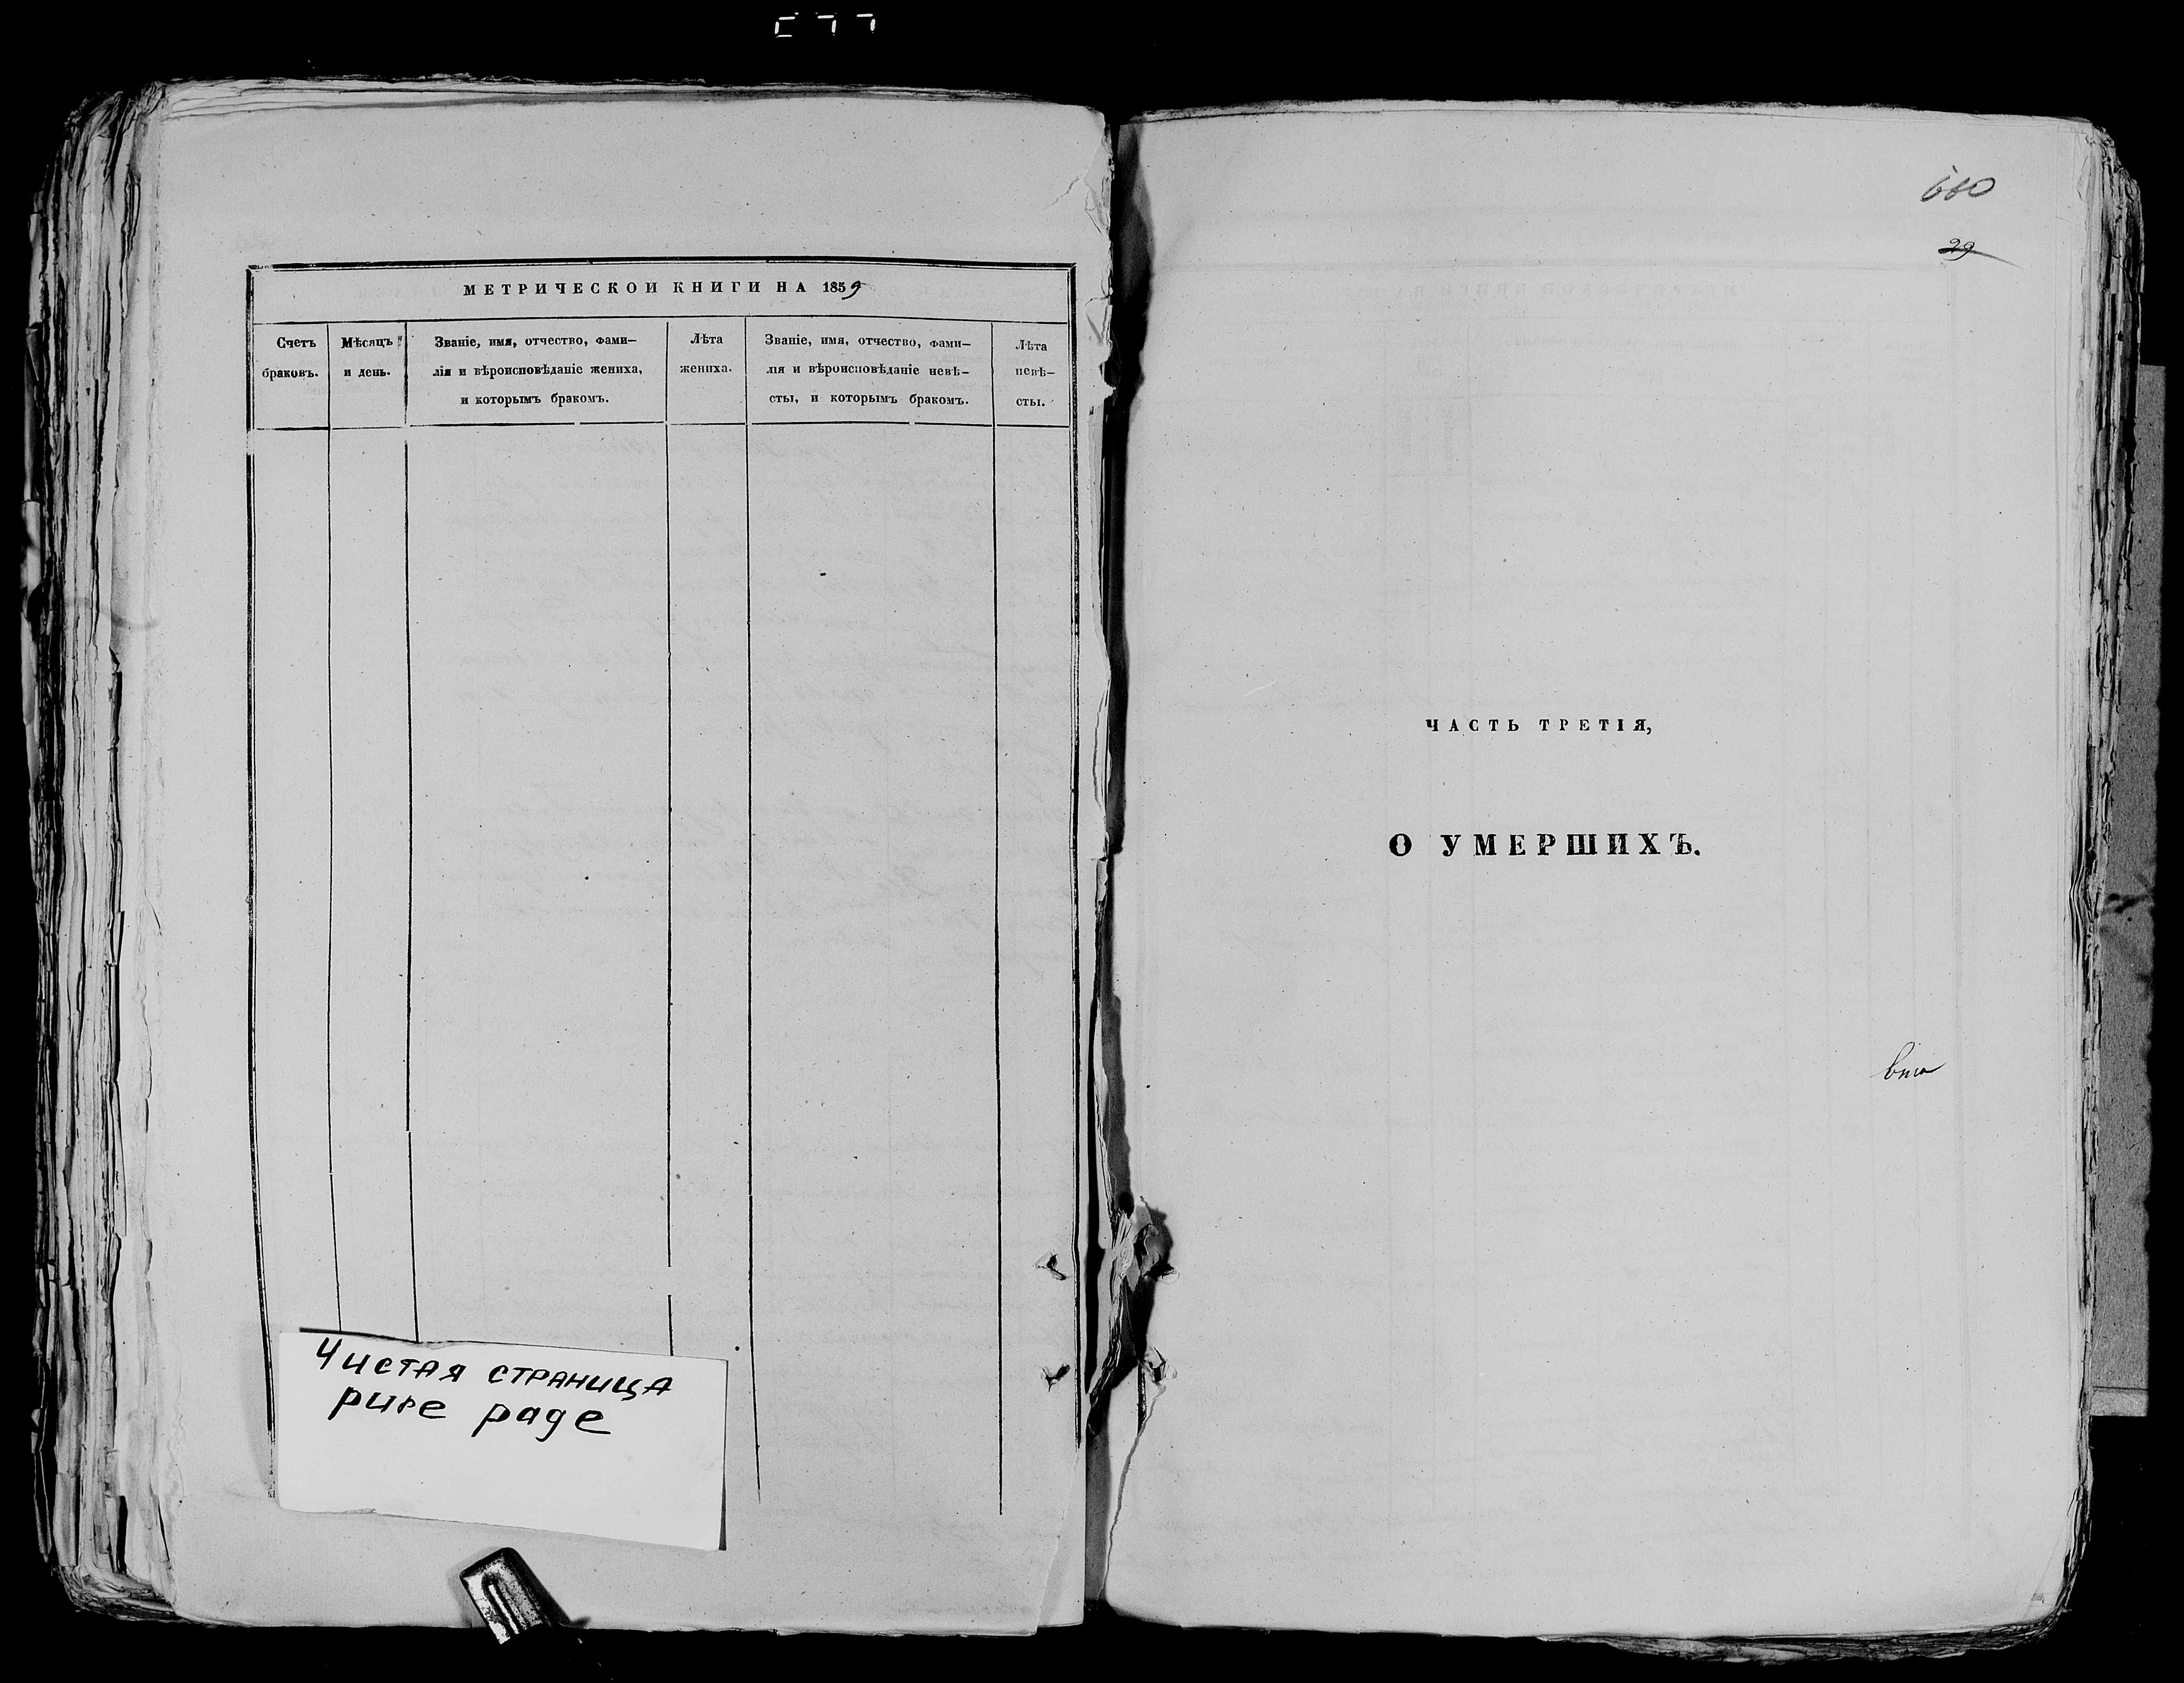 МЕТРИЧЕСКОЙ КНИГИ НА 1859
Счетъ
браковъ.
Мѣсяцъ
и день.
Званіе, имя, отчество, фами-
лія и вѣроисповѣданіе жениха,
и которымъ бракомъ.
Лѣта
жениха.
Званіе, имя, отчество, фами-
лія и вѣроисповѣданіе невѣ-
сты, и которымъ бракомъ.
Лѣта
невѣ-
сты.
Чистая страница
pure page
660
29
ЧАСТЬ ТРЕТІЯ,
О УМЕРШИХЪ.